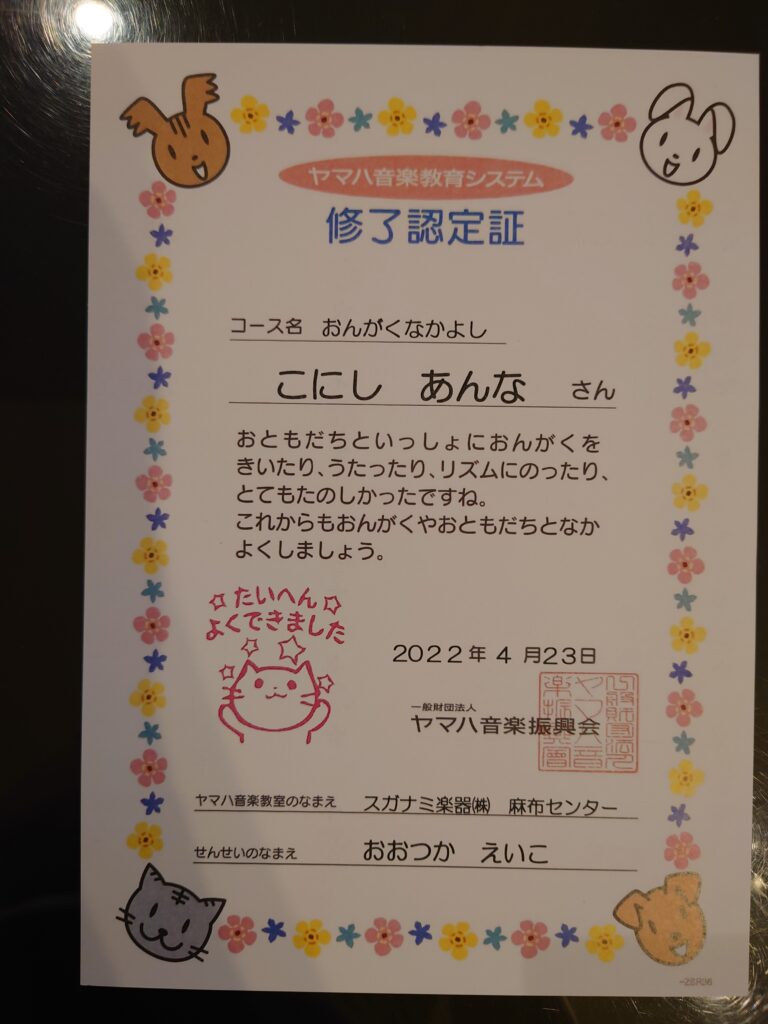 ヤマハ音楽教育システム
修了認定証
コース名 おんがくなかよし
こにし あんな さん
おともだちといっしょにおんがくを
きいたり、うたったり、リズムにのったり、
とてもたのしかったですね。
これからもおんがくやおともだちとなか
よくしましょう。
たいへん
よくできました
2022年 4月23日
一般財団法人
ヤマハ音楽振興会
ヤマハ音楽教室のなまえ スガナミ楽器㈱ 麻布センター
せんせいのなまえ おおつか えいこ